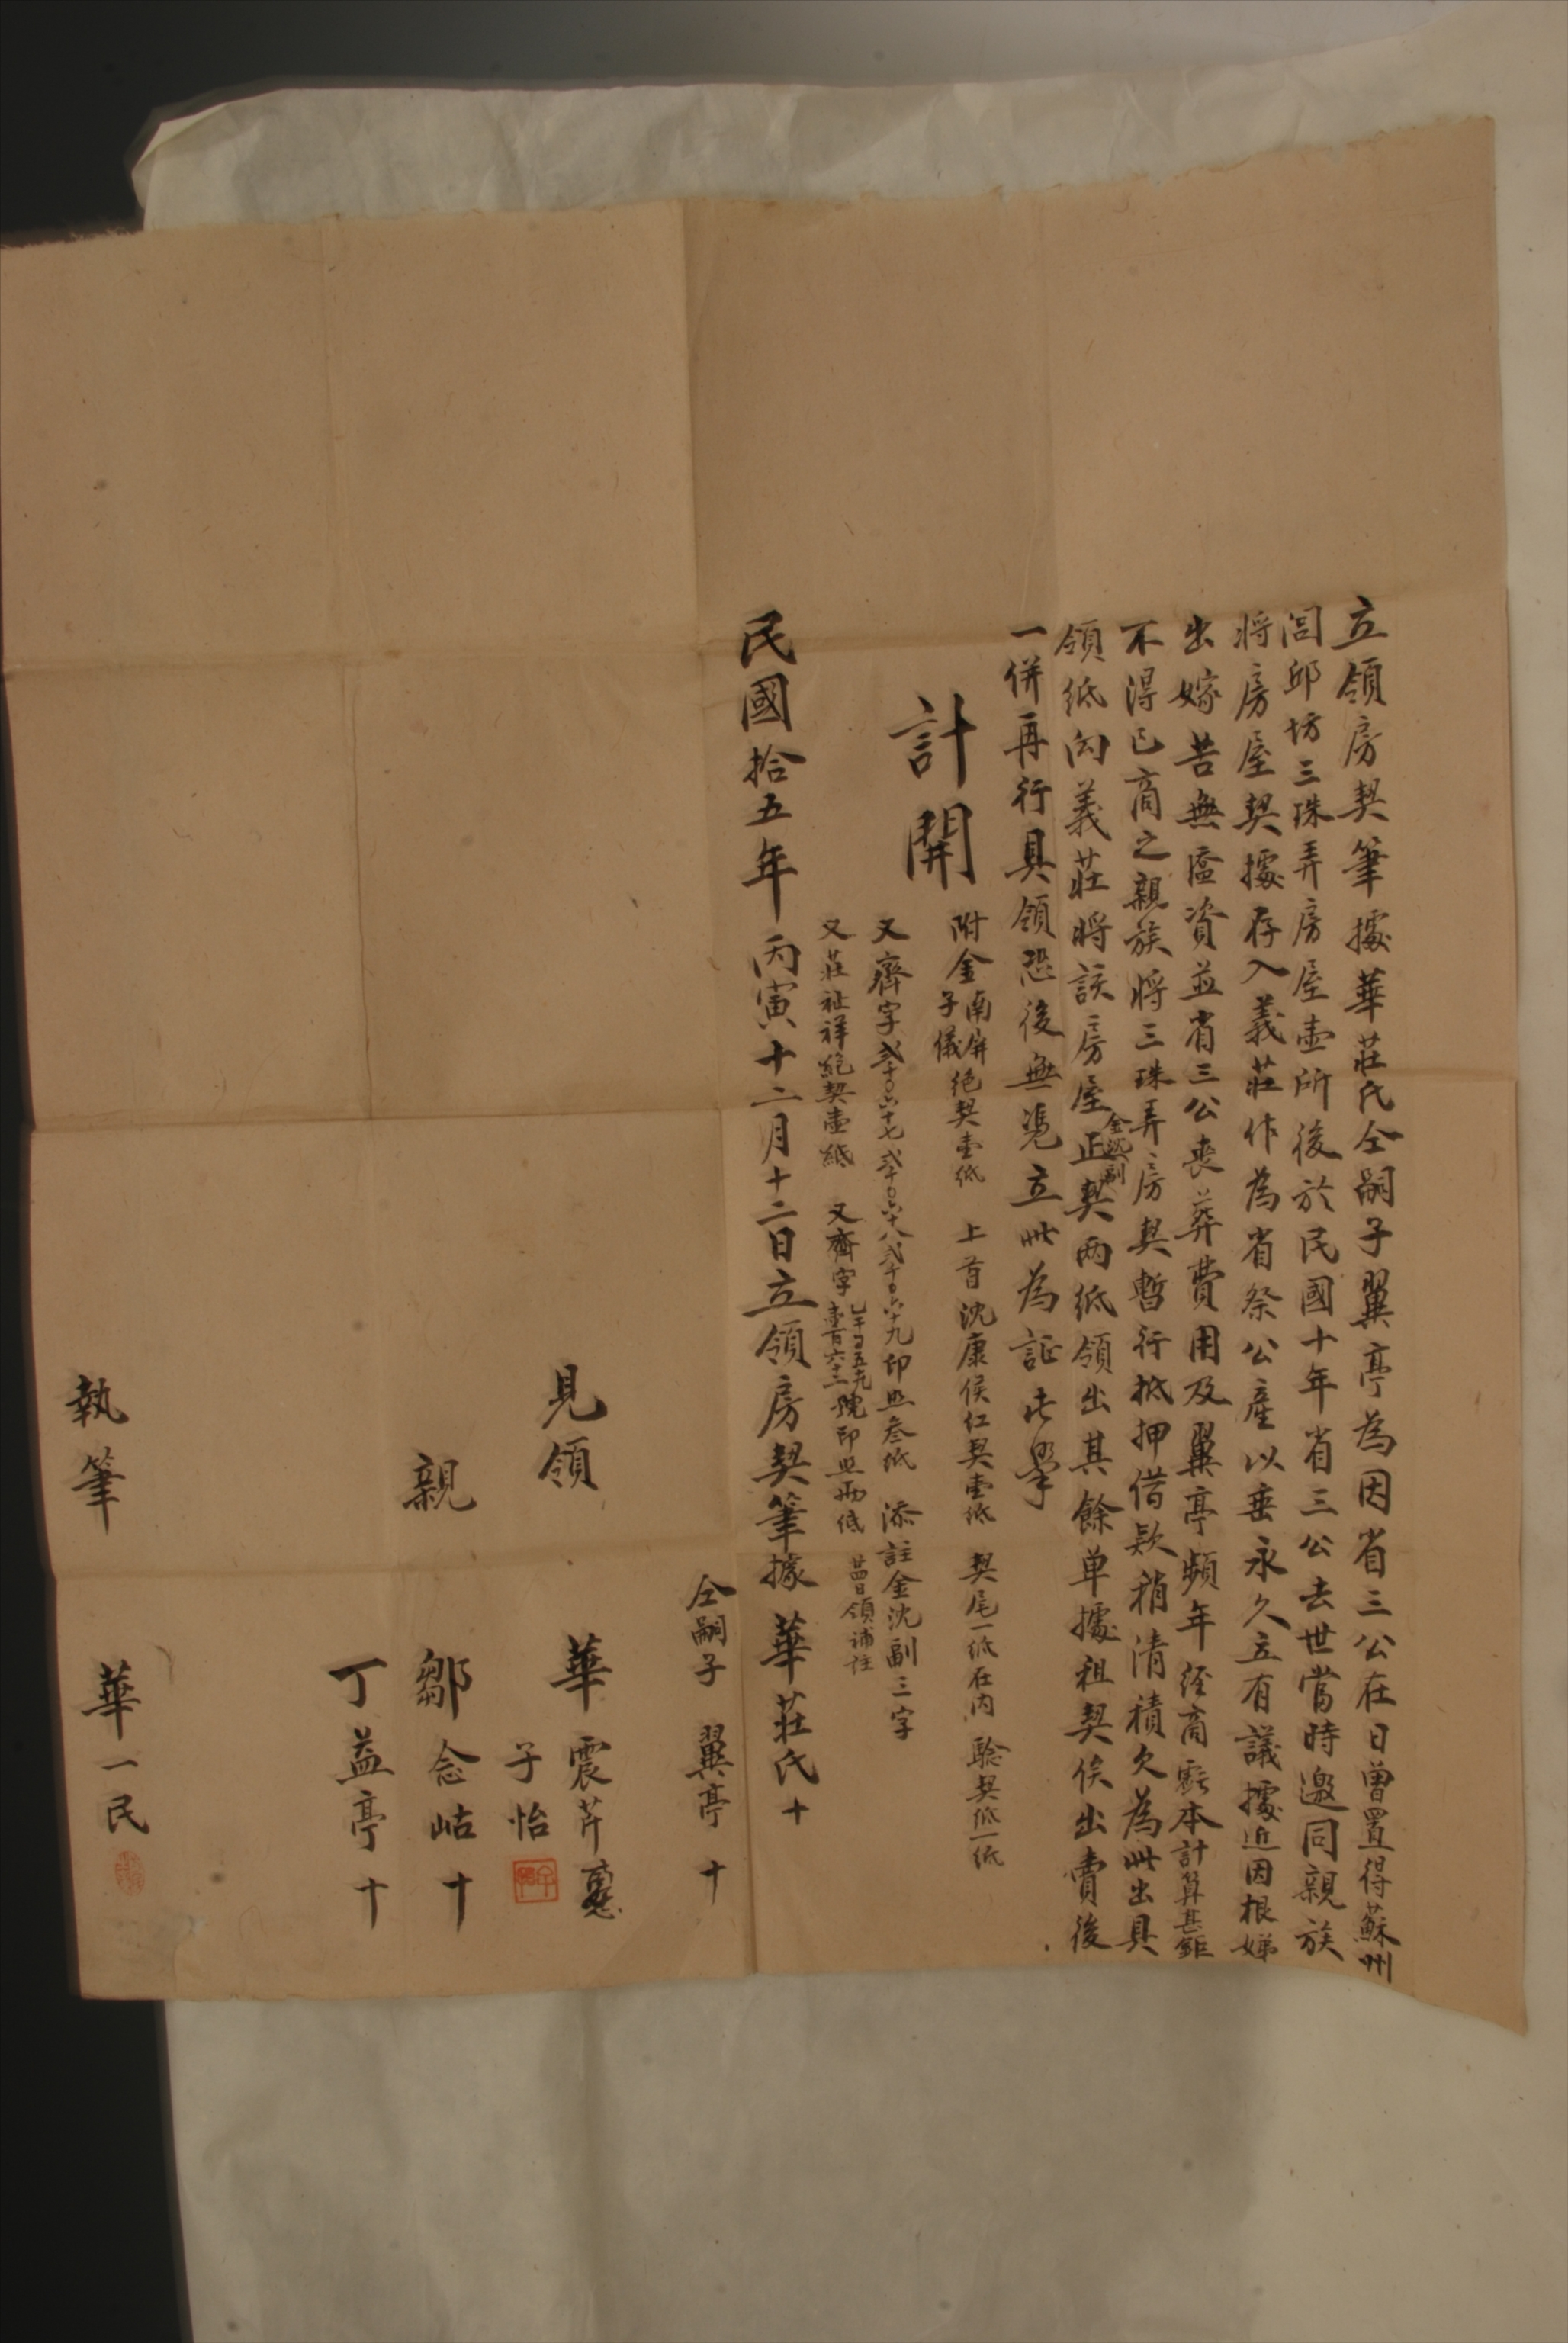 立領房契筆據華莊氏仝嗣子翼亭為因省三公在日曾置得蘇州
閭邱坊三珠弄房屋壹所後於民國十年省三公去世當時邀同親族
將房屋契據存入義莊作為省祭公產以垂永久立有議據近因根娣
出嫁苦無奩資並省三公喪葬費用及翼亭頻年經商虧本計算甚鉅
不得已商之親族將三珠弄房契暫行抵押借款稍清積欠為此出具
領紙向義莊將該房屋正契兩紙領出其餘单據租契俟出賣後
金沈副
一併再行具領恐後無凴立此為証此學
計開
附金南屏子儀絕契壹紙 上首沈康侯仁契壹紙 契尾一紙在内 驗契紙一紙
又齊字弍千〇六十七弍千〇六十八弍千〇六十九印照叁紙 添註金沈副三字
又莊祉祥絕契壹紙 又齊字壹百六十二號印照兩紙 廿四日領補註
民國拾五年丙寅十二月十二日立領房契筆據華莊氏十
仝嗣子 翼亭 十
見領 華震芹
子怡
親 鄒念岵 十
丁益亭 十
執筆 華一民